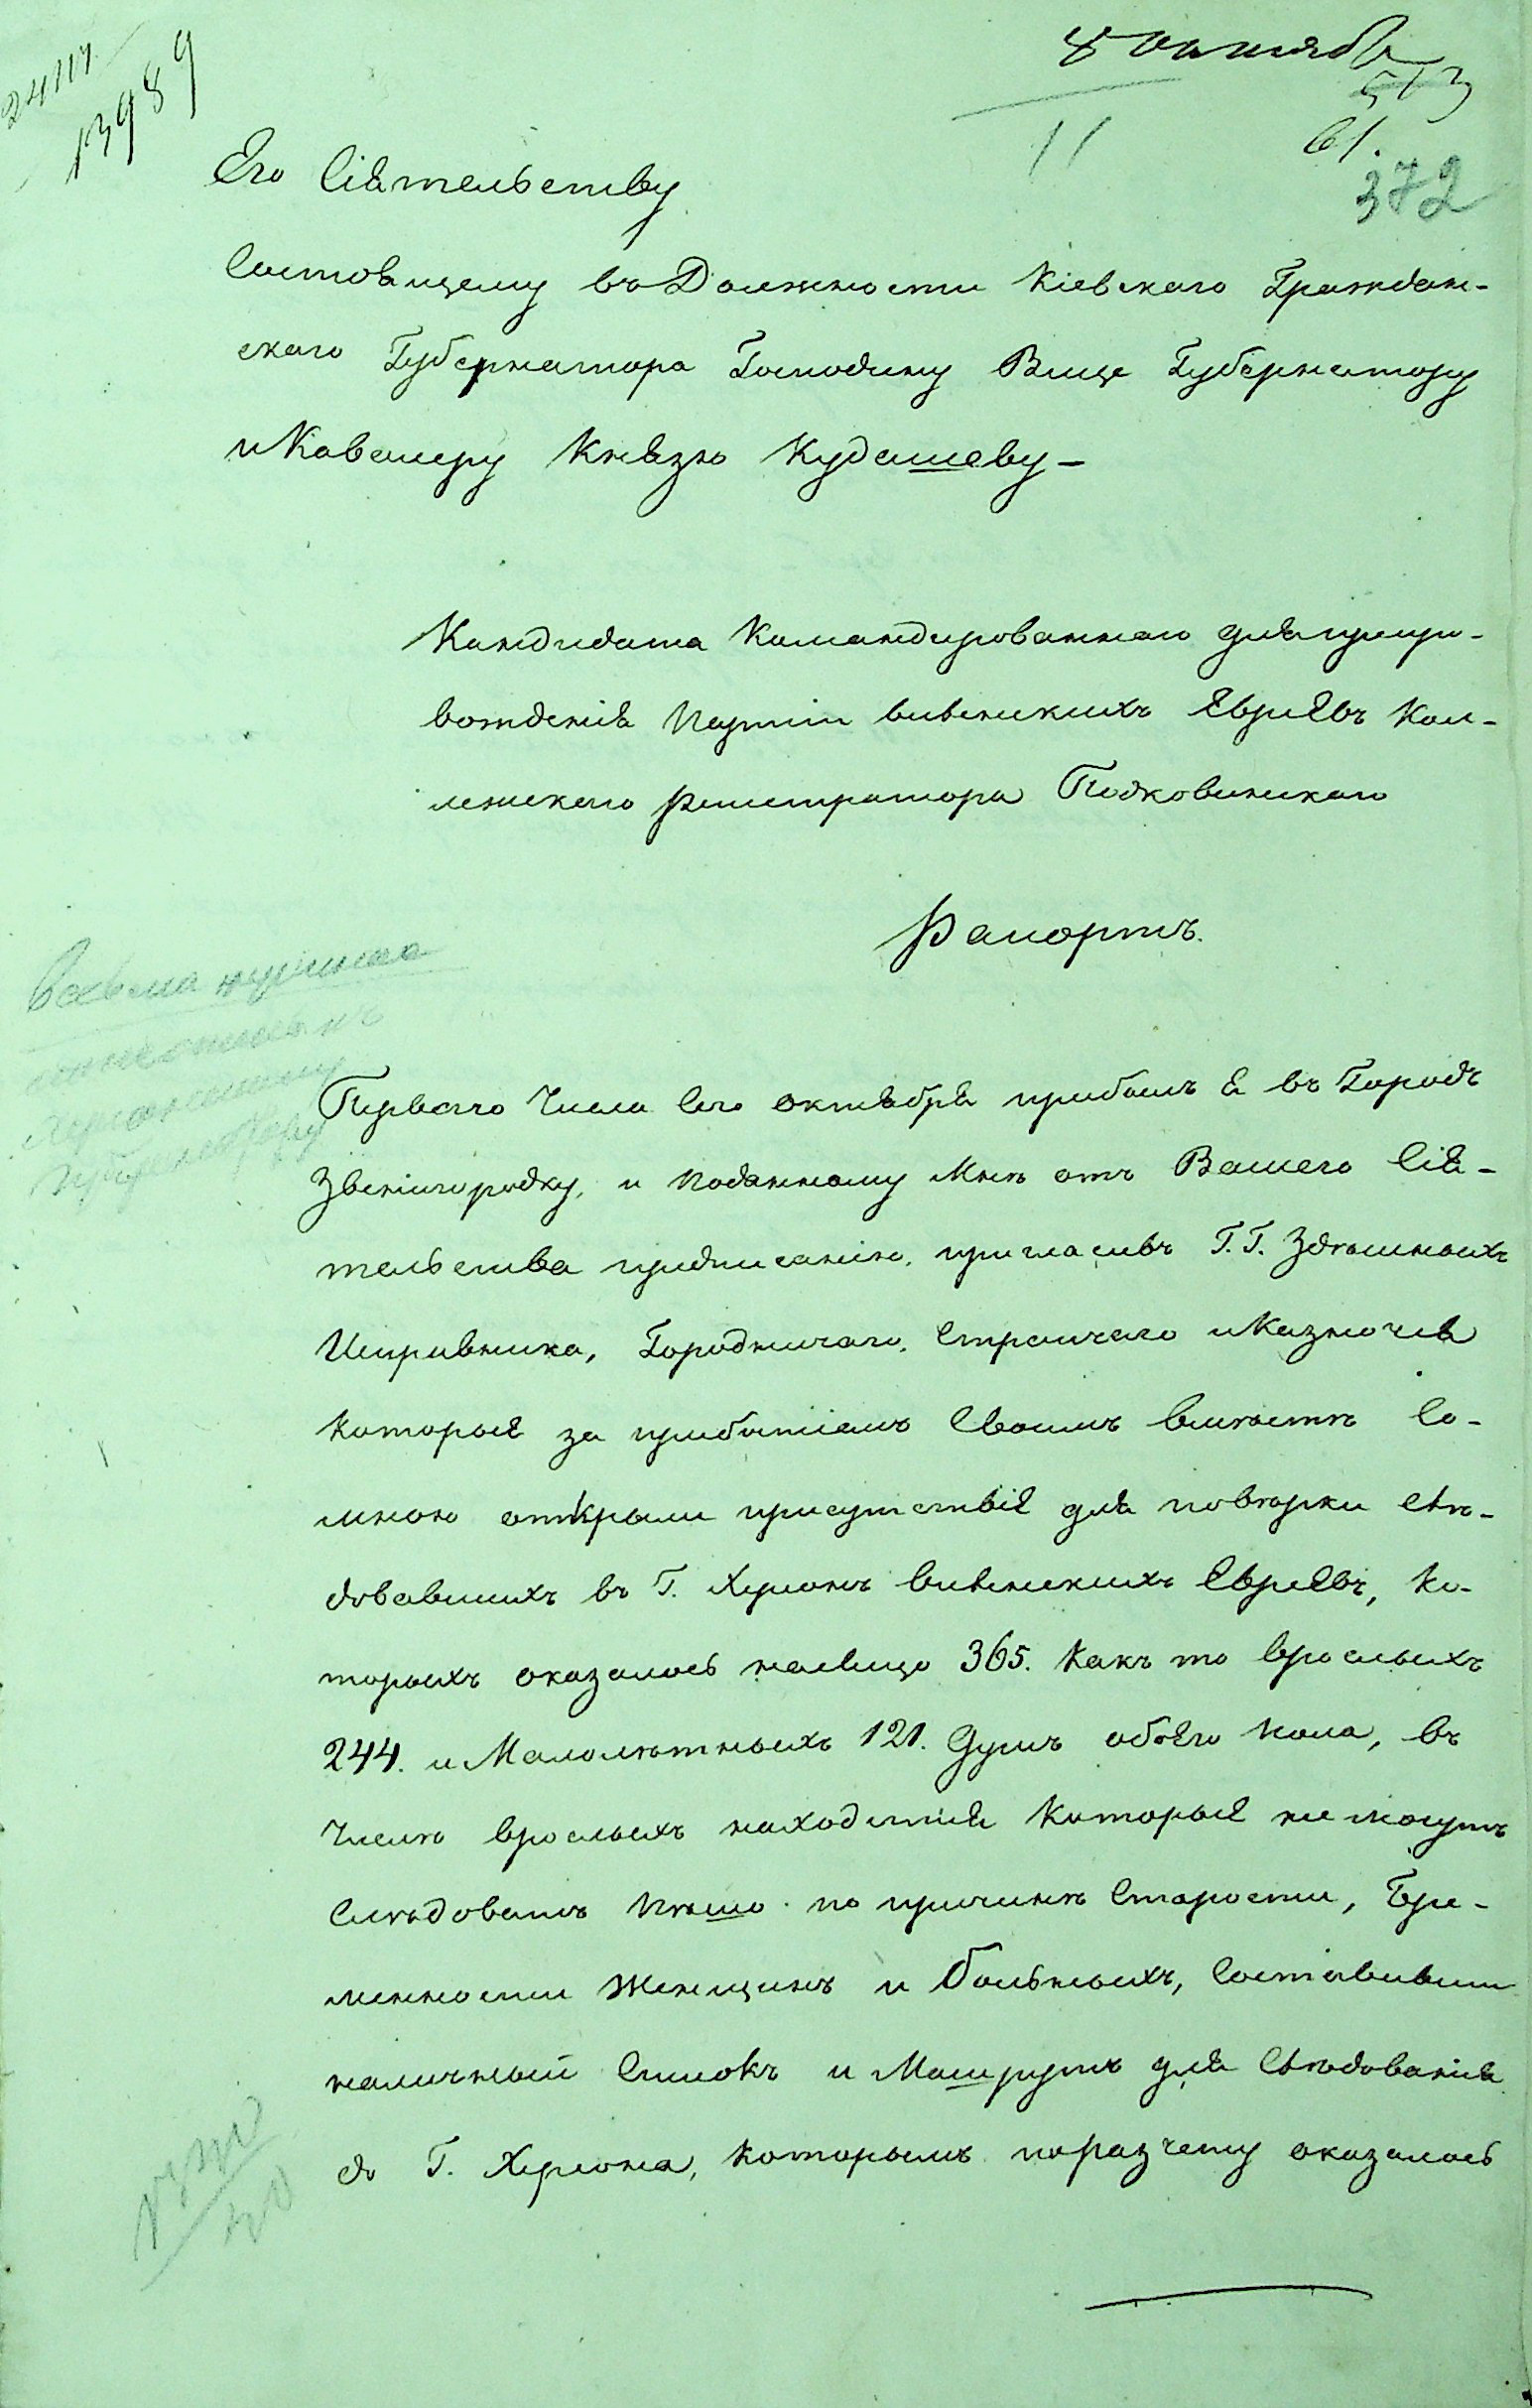 13989
8 октября
573
61.
11
372
Его Сіятельству
Состоящему въ Должности Кіевскаго Граждан-
скаго Губернатора Господину Вице Губернатору
и Кавалеру Князю Кудашеву -
Кандидата Командированнаго для препро-
вожденія партіи виленскихъ Евреевъ Кол-
лежскаго Регистратора Подковинскаго
Рапортъ.
Весьма нужное
Херсонскому
Губернатору
Перваго Числа сего октября прибылъ я въ Городъ
Звенигородку, и поданному мнѣ отъ Вашего Сія-
тельства предписанію, пригласивъ Г.Г. Здѣшныхъ
Исправника, Городничаго, Стряпчаго и Казначея
Которые за прибытіемъ Своимъ вмѣстѣ со-
мною открыли присутствіе для повѣрки слѣ-
довавшихъ въ Г. Херсонъ виленскихъ Евреевъ, ко-
торыхъ оказалось налицо 365. Какъ то врослыхъ
244. и Малолѣтныхъ 121. Душъ обоего пола, въ
Числѣ врослыхъ находятся Которые не могутъ
Слѣдовать пѣшо по причинѣ Старости, Бре-
менности Женщинъ и Больныхъ, Составивши
наличный Списокъ и Машрутъ для Слѣдованія
до Г. Херсона, Которымъ поразчету оказалось